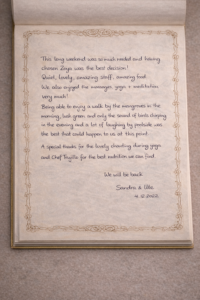 This long weekend was so much needed and having
chosen Zoya was the best decision!
Quiet, lovely, amazing staff, amazing food.
We also enjoyed the massages, yoga + meditation
very much!
Being able to enjoy a walk by the evergreens in the
evening, lush green and only the sound of birds chirping
in the evening and a lot of laughing by
the best that could happen to us at this point.
A special thanks for the lovely chanting during yoga
and Chef for the best nutrition we can find.
We will be back
Sandra &